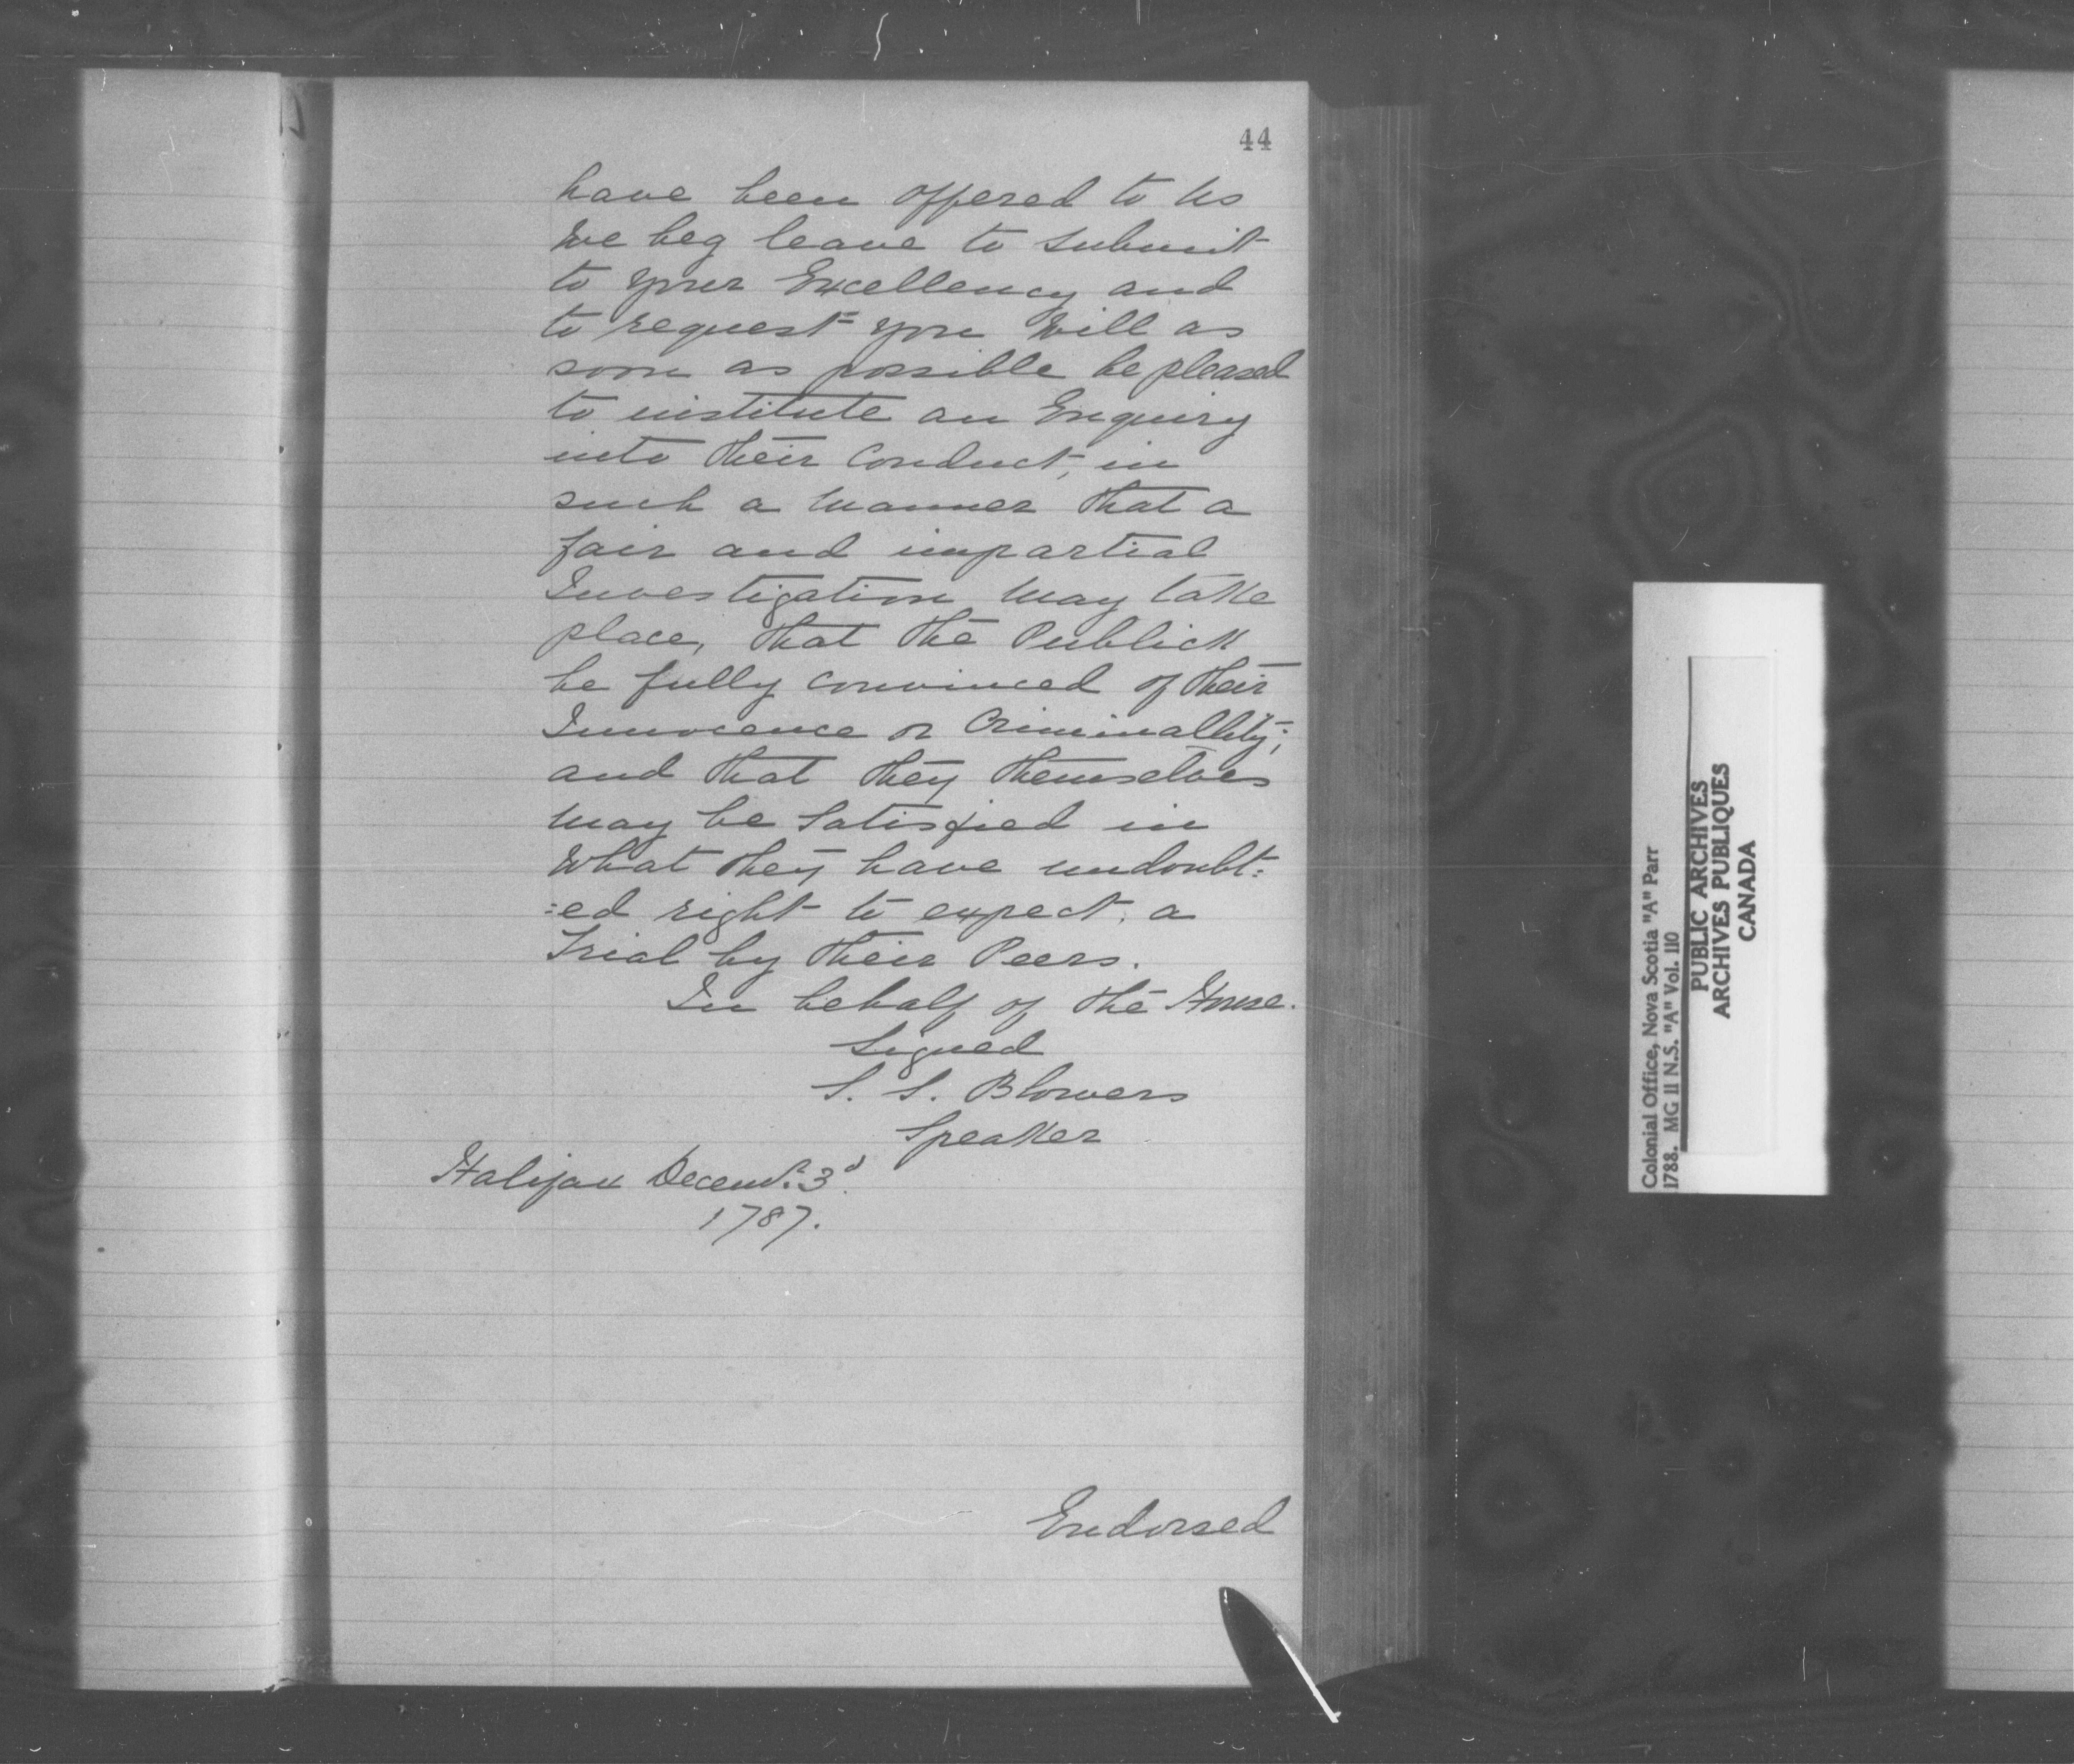 44
have been offered to Us
We beg leave to submit
to your Excellency and
to request you Will as
soon as possible be pleased
to institute an Enquiry
into their Conduct, in
such a Manner that a
fair and impartial
Investigation May take
place, that the Publick
be fully convinced of their
Innocence or Criminallity;
and that they themselves
May be Satisfied in
What they have undoubt:
:ed right to expect, a
Trial by their Peers.
In behalf of the House.
Signed
S. S. Blowers
Speaker
Halifax Decemr. 3d.
1787.
Endorsed
Colonial Office, Nova Scotia "A" Parr
1788. MG 11 N.S. "A" Vol. 110
PUBLIC ARCHIVES
ARCHIVES PUBLIQUES
CANADA